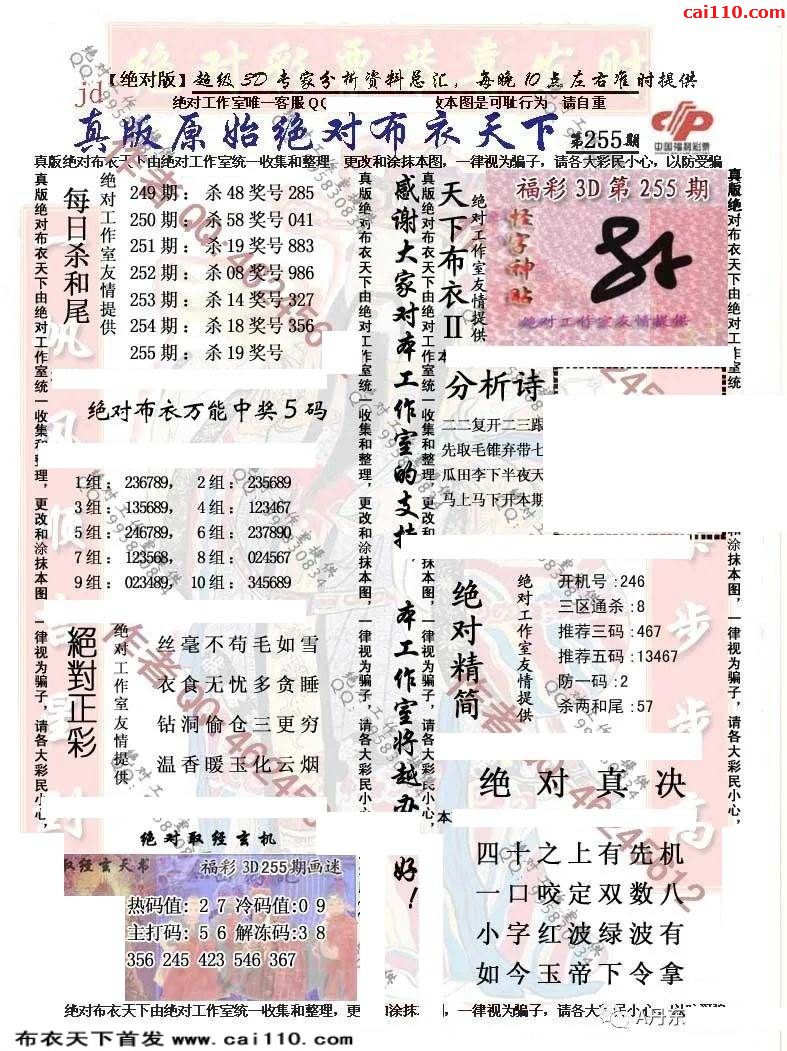 cai110.com
【绝对版】超级3D专家分析资料总汇，每晚10点左右准时提供
jd
绝对工作室唯一客服QQ
改本图是可耻行为 请自重
真版原始绝对布衣天下
第255期
中国福利彩票
真版绝对布衣天下由绝对工作室统一收集和整理，更改和涂抹本图，一律视为骗子，请各大彩民小心，以防受骗
每日杀和尾
绝对工作室友情提供
249期：杀48奖号285
250期：杀58奖号041
251期：杀19奖号883
252期：杀08奖号986
253期：杀14奖号327
254期：杀18奖号356
255期：杀19奖号
绝对布衣万能中奖5码
1组：236789，2组：235689
3组：135689，4组：123467
5组：246789，6组：237890
7组：123568，8组：024567
9组：023489，10组：345689
絕對正彩
绝对工作室友情提供
丝毫不苟毛如雪
衣食无忧多贪睡
钻洞偷仓三更穷
温香暖玉化云烟
绝对取经玄机
取经玄天书
福彩3D255期画迷
热码值:27冷码值:09
主打码:56解冻码:38
356 245 423 546 367
真版绝对布衣天下由绝对工作室统一收集和整理，更改和涂抹本图，一律视为骗子，请各大彩民小心，
感谢大家对本工作室的支持，本工作室将越办
好！
天下布衣II
绝对工作室友情提供
福彩3D第255期
怪字神贴
绝对工作室友情提供
分析诗
二二复开二三跟
先取毛锥弃带七
瓜田李下半夜天
马上马下开本期
绝对精简
绝对工作室友情提供
开机号:246
三区通杀:8
推荐三码:467
推荐五码:13467
防一码:2
杀两和尾:57
绝对真决
四十之上有先机
一口咬定双数八
小字红波绿波有
如今玉帝下令拿
绝对布衣天下由绝对工作室统一收集和整理，更
和涂抹本图，一律视为骗子，请各大彩民小心，以防受骗
A丹东
布衣天下首发 www.cai110.com